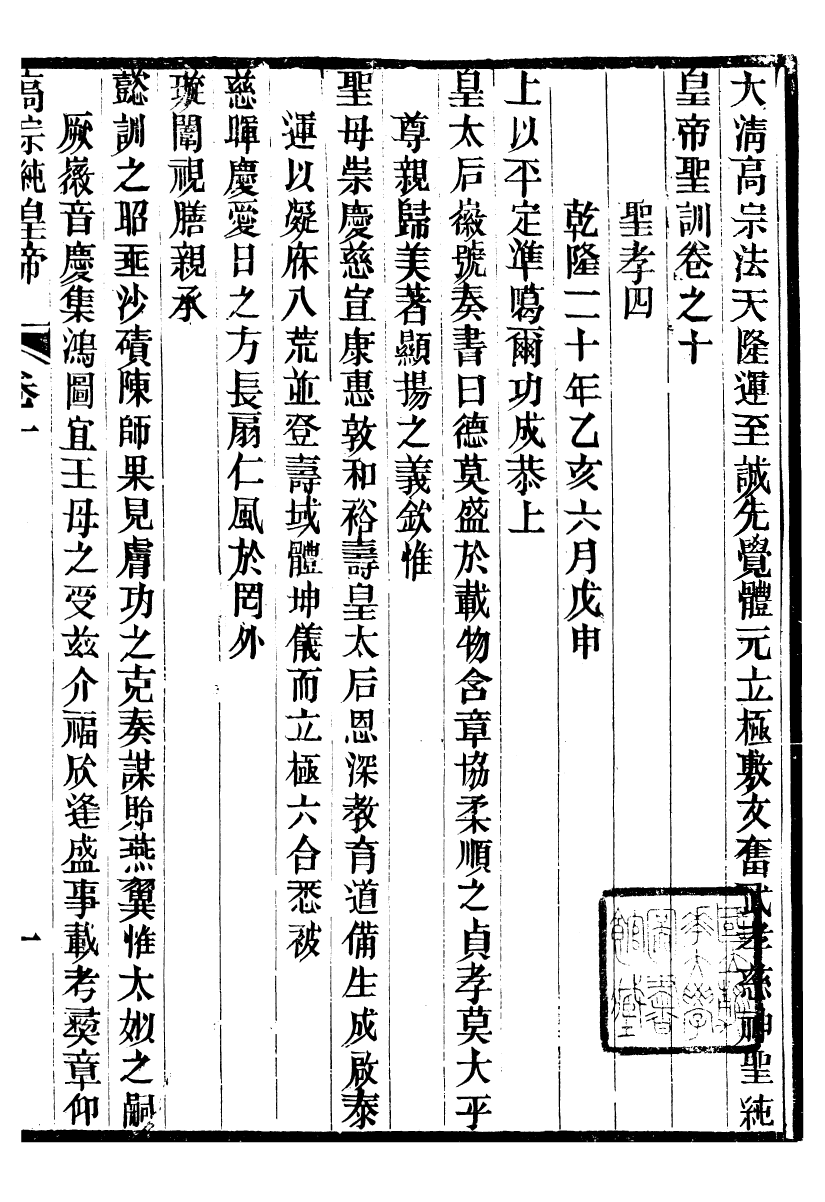 大清高宗法天隆運至誠先覺體元立極敷文奮武孝慈神聖純
皇帝聖訓卷之十
聖孝四
乾隆二十年乙亥六月戊申
上以平定準噶爾功成恭上
皇太后徽號奏書曰德莫盛於載物含章協柔順之貞孝莫大乎
尊親歸美著顯揚之義欽惟
聖母崇慶慈宣康惠敦和裕壽皇太后恩深教育道備生成啟泰
運以凝庥八荒並登壽域體坤儀而立極六合悉被
慈暉慶愛日之方長扇仁風於罔外
璇闈視膳親承
懿訓之昭垂沙磧陳師果見膚功之克奏謀貽燕翼惟太姒之嗣
厥徽音慶集鴻圖宜王母之受茲介福欣逢盛事載考彝章仰
高宗純皇帝 卷十 一